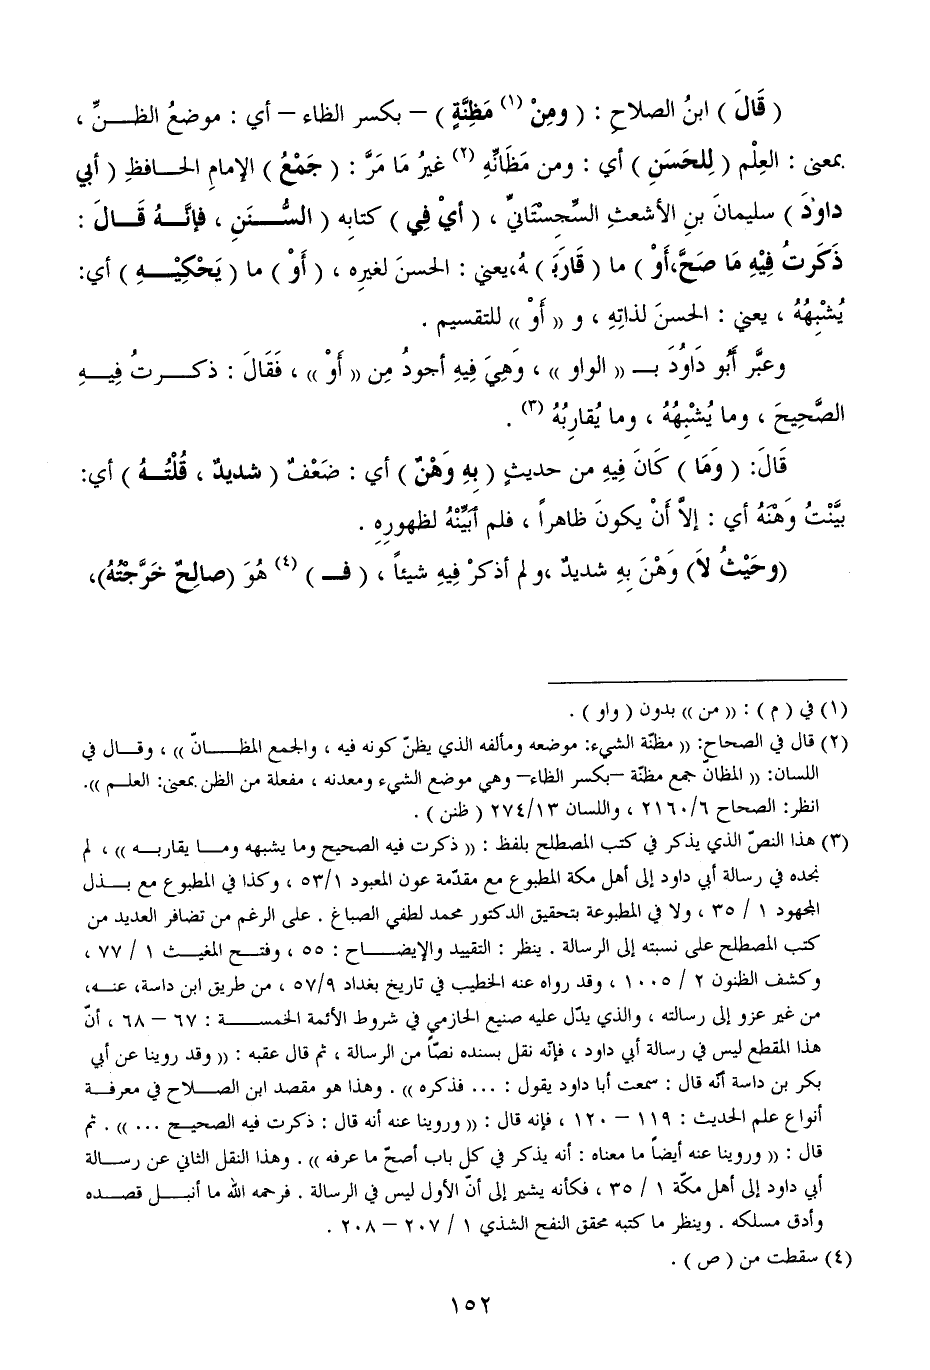 ( قَالَ ) ابنُ الصلاحِ : ( ومِنْ (١) مَظِنَّةٍ ) – بكسر الظاء – أي : موضعُ الظـــنِّ ،
بمعنى : العِلْم ( لِلحَسَنِ ) أي : ومن مَظَانِّهِ (٢) غيرُ مَا مَرَّ : ( جَمْعُ ) الإمامِ الحـافظِ ( أبي
داودَ ) سليمانَ بنِ الأشعثِ السِّجِسْتانيِّ ، ( أيْ فِي ) كتابه ( السُّـــنَنِ ، فإنَّـهُ قَـالَ :
ذَكَرتُ فِيْهِ مَا صَحَّ،أَوْ ) ما ( قَارَبَ ) ـهُ،يعني : الحسنَ لغيره ، ( أَوْ ) ما ( يَحْكِيْـــهِ ) أي:
يُشْبِهُهُ ، يعني : الحسنَ لذاتِهِ ، و (( أَوْ )) للتقسيم .
وعبَّر أَبُو دَاوُدَ بـ (( الواو )) ، وَهِيَ فِيهِ أجودُ مِن (( أَوْ )) ، فَقَالَ : ذكـــرتُ فِيـــهِ
الصَّحِيحَ ، وما يُشْبِهُهُ ، وما يُقاربُهُ (٣) .
قَالَ: ( وَمَا ) كَانَ فِيهِ من حديثٍ ( بِهِ وَهْنٌ ) أي : ضَعْفٌ ( شديدٌ ، قُلْتُـهُ ) أي:
بيَّنْتُ وَهْنَهُ أي : إلاَّ أَنْ يكونَ ظاهراً ، فلم أبَيِّنْهُ لظهورِهِ .
(وحَيْثُ لاَ) وَهْنَ بِهِ شديدٌ ،ولم أذكرْ فِيهِ شيئاً ، ( فـ ) (٤) هُوَ (صالِحٌ خَرَّجْتُهُ)،
(١) في ( م ) : (( من )) بدون ( واو ) .
(٢) قال في الصحاح: (( مظنّة الشيء: موضعه ومألفه الذي يظنّ كونه فيه ، والجمع المظـــانّ )) ، وقـال في
اللسان: (( المظانّ جمع مظنّة –بكسر الظاء– وهي موضع الشيء ومعدنه ، مفعلة من الظن بمعنى: العلم )).
انظر: الصحاح ٢١٦٠/٦ ، واللسان ٢٧٤/١٣ ( ظنن ) .
(٣) هذا النصّ الذي يذكر في كتب المصطلح بلفظ : (( ذكرت فيه الصحيح وما يشبهه ومـا يقاربـه )) ، لم
نجده في رسالة أبي داود إلى أهل مكة المطبوع مع مقدّمة عون المعبود ٥٣/١ ، وكذا في المطبوع مع بـذل
المجهود ١ / ٣٥ ، ولا في المطبوعة بتحقيق الدكتور محمد لطفي الصباغ . على الرغم من تضافر العديد من
كتب المصطلح على نسبته إلى الرسالة . ينظر : التقييد والإيضـــاح : ٥٥ ، وفتـح المغيـث ١ / ٧٧ ،
وكشف الظنون ٢ / ١٠٠٥ ، وقد رواه عنه الخطيب في تاريخ بغداد ٥٧/٩ ، من طريق ابن داسة، عنـه،
من غير عزو إلى رسالته ، والذي يدّل عليه صنيع الحازمي في شروط الأئمة الخمســـة : ٦٧ – ٦٨ ، أنّ
هذا المقطع ليس في رسالة أبي داود ، فإنّه نقل بسنده نصّاً من الرسالة ، ثم قال عقبه : (( وقد روينا عن أبي
بكر بن داسة أنّه قال : سمعت أبا داود يقول : ... فذكره )) . وهذا هو مقصد ابن الصـلاح في معرفـة
أنواع علم الحديث : ١١٩ – ١٢٠ ، فإنه قال : (( وروينا عنه أنه قال : ذكرت فيه الصحيـح ... )) . ثم
قال : (( وروينا عنه أيضاً ما معناه : أنه يذكر في كل باب أصحّ ما عرفه )) . وهذا النقل الثاني عن رسـالة
أبي داود إلى أهل مكّة ١ / ٣٥ ، فكأنه يشير إلى أنّ الأول ليس في الرسالة . فرحمه الله ما أنبـل قصـده
وأدق مسلكه . وينظر ما كتبه محقق النفح الشذي ١ / ٢٠٧ – ٢٠٨ .
(٤) سقطت من ( ص ) .
١٥٢